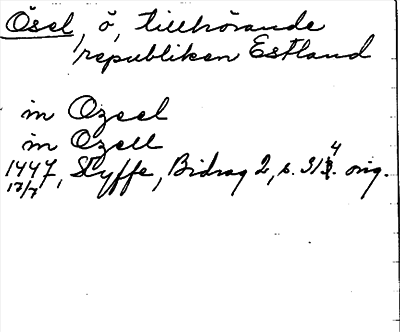 Ösel, ö, tillhörande
republiken Estland
in Ozeel
in Ozell
1447, Styffe, Bidrag 2, s. 314. orig.
13/7